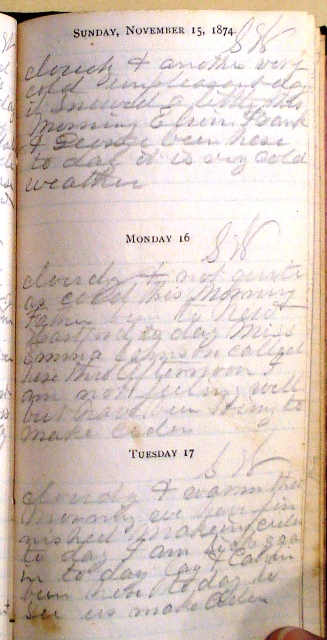 SUNDAY, NOVEMBER 15, 1874.
S W
cloudy & another very
cold unpleasant day
it snowed a little this
Morning Frank
& George been here
to day it is very cold
weather
MONDAY 16
S W
cloudy & not quite
as cold this Morning
been to New
to day Miss
Emma Johnson called
here this Afternoon I
am not feeling well
but have been trying to
make cider
TUESDAY 17
S W
cloudy & warm this
Morning we have fin
nished making cider
to day I am sick aga
in to day Calvin
been here to day to
see us make Cider